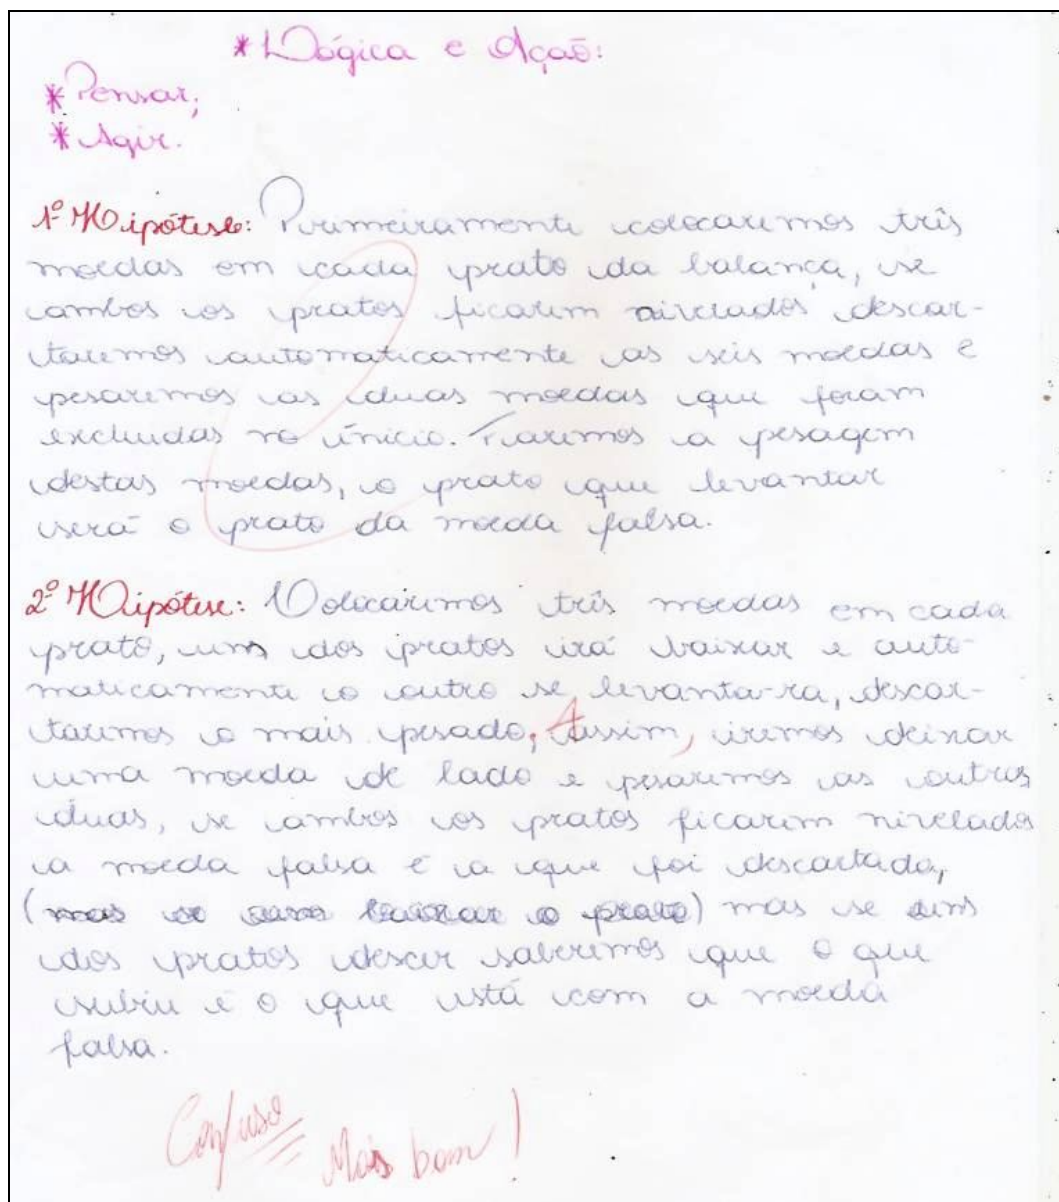 * Lógica e Ação:
* Pensar;
* Agir.
1ª Hipótese: Primeiramente colocaremos três
moedas em cada prato da balança, se
ambos os pratos ficarem nivelados descar-
taremos automaticamente as seis moedas e
pesaremos as duas moedas que foram
excluidas no ínicio. Faremos a pesagem
destas moedas, o prato que levantar
será o prato da moeda falsa.
2ª Hipótese: Colocaremos três moedas em cada
prato, um dos pratos irá baixar e auto-
maticamente o outro se levanta-ra, descar-
taremos o mais pesado; Assim, iremos deixar
uma moeda de lado e pesaremos as outras
duas, se ambos os pratos ficarem nivelados
a moeda falsa é a que foi descartada,
(mas se baixar o prato) mas se um
dos pratos descer saberemos que o que
subiu é o que está com a moeda
falsa.
Confuso
Mas bom!